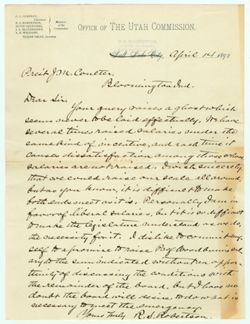 OFFICE OF THE UTAH COMMISSION,
Salt Lake City, April 1st 1892
Prest J. M. Coulter,
Bloomington Ind.
Dear Sir,
Your query raises a ghost which
seems never to be laid effectually. We have
several times raised salaries under the
same kind of incentive, and each time it
causes dissatisfaction among those whose
salaries are not raised. I wish sincerely
that we could raise our scale all around
but as you know, it is difficult to make
both ends meet as it is. Personally I am in
favor of liberal salaries, but it is so difficult
to make the Legislature understand
the necessity for it. I dislike to commit my-
self to a promise to raise Prof
at the sum indicated without an oppor-
tunity of discussing the conditions with
the remainder of the board, but I have no
doubt the board will desire to do what is
necessary to meet the emergency.
Yours truly, R. S. Robertson.